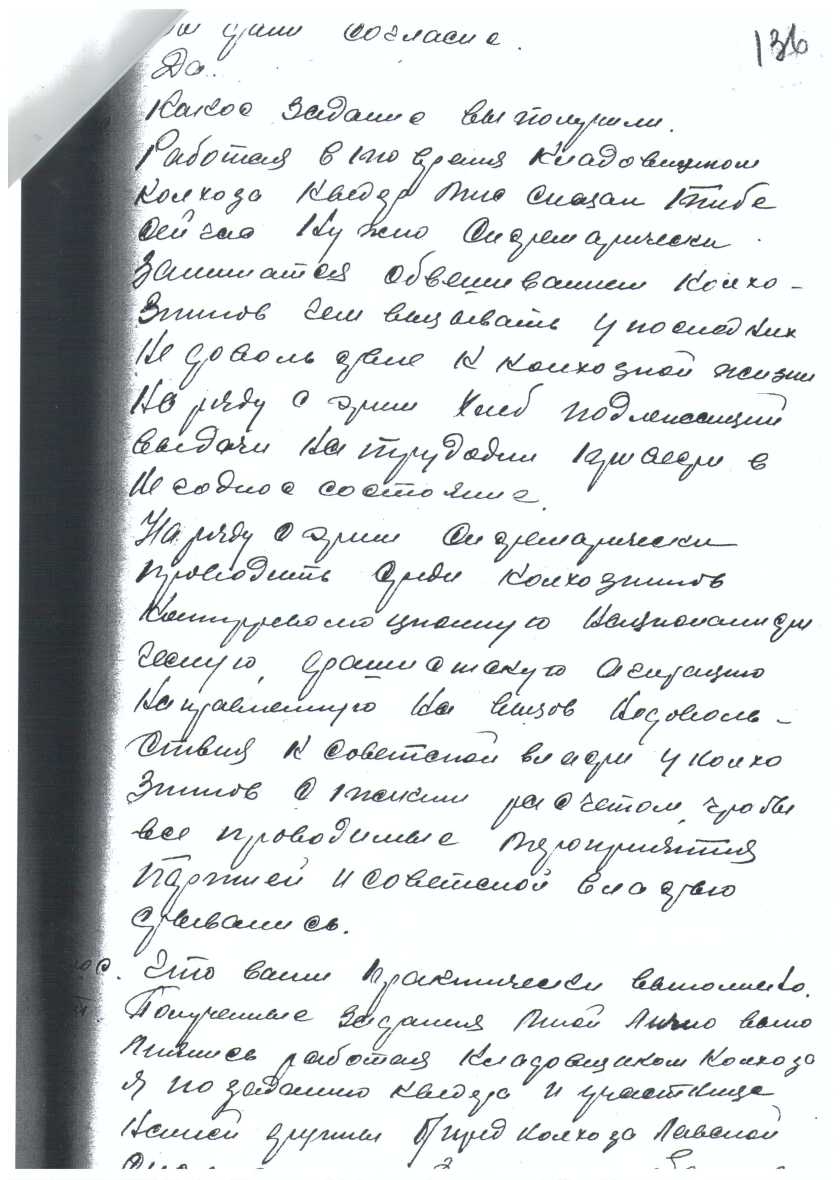 дали согласие.
136
Да.
Какое задание вы получили.
Работая в то время кладовщиком
колхоза Кведер мне сказал тебе
сейчас нужно систематически
заниматся обвешиванием колхо-
зников чем вызывать у последних
недовольствие к колхозной жизни
на ряду с этим хлеб подлежащий
выдачи на трудодни привести в
негодное состояние.
На ряду с этим систематически
проводить среди колхозников
контрреволюционную националисти
ческую, фашистскую агитацию
направленную на вызов недоволь-
ствия к советской власти у колхо
зников с таким расчетом, чтобы
все проводимые мероприятия
партией и советской властью
срывались.
Что вами практически выполнено.
Полученные задания мной лично выпо
лнялись работая кладовщиком колхоза
я по заданию Кведера и участница
нашей группы колхоза